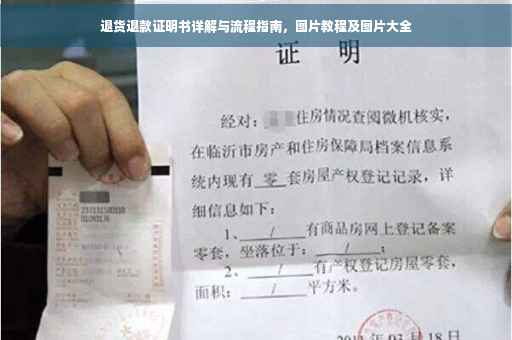 退货退款证明书详解与流程指南，图片教程及图片大全
证 明
经对：住房情况查阅微机核实，
在临沂市房产和住房保障局档案信息系
统内现有 零 套房屋产权登记记录，详
细信息如下：
1、 / 有商品房网上登记备案
零套，坐落位于： / ；
2、 / 有产权登记房屋零套，
面积： / 平方米。
月 18 日